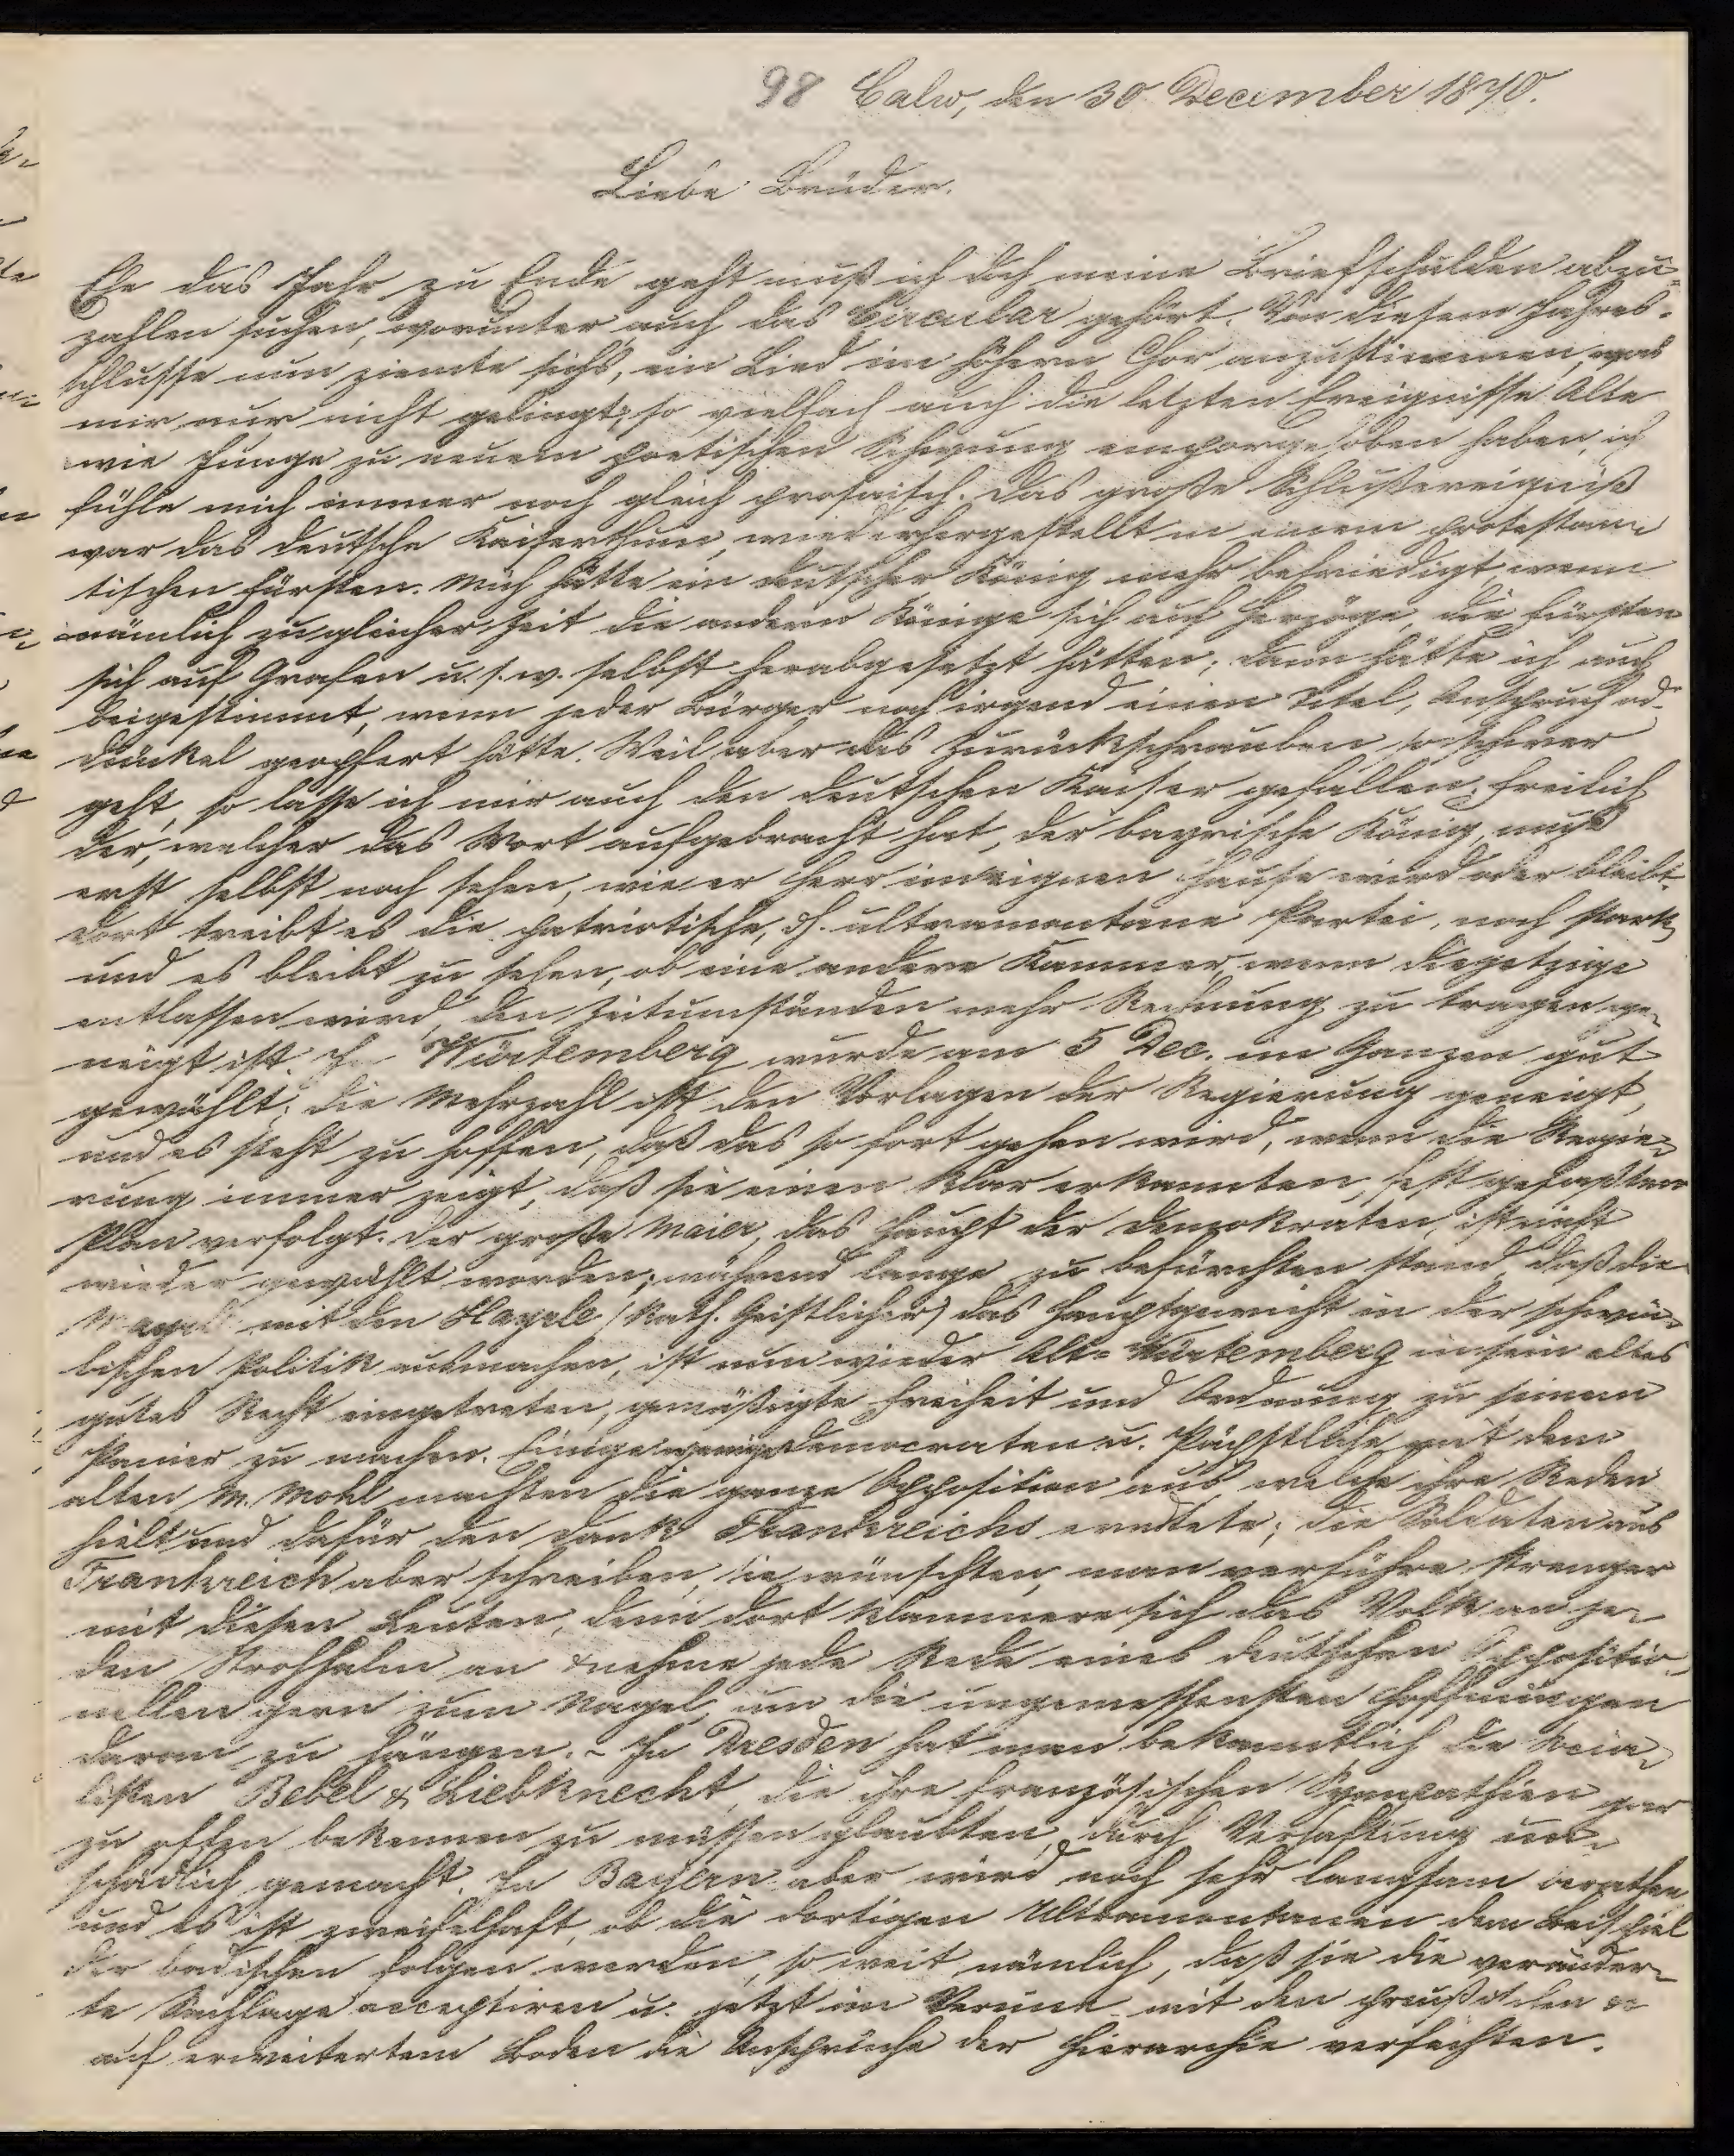 98 Calw, den 30 December 1870.
Liebe Brüder.
Ehe das Jahr zu Ende geht muß ich doch meine Briefschulden abzu-
zahlen suchen, worunter auch das Circular gehört. Von diesem Jahres-
schlusse nun ziemte sichs, ein Lied im höhern Chor anzustimmen, was
mir nur nicht gelingt; so vielfach auch die letzten Ereignisse Alte
wie Junge zu neuem poetischen Schwung emporgehoben haben, ich
fühle mich immer noch gleich prosaisch. Das große Schlußereigniß
war das deutsche Kaiserthum, wiederhergestellt in einem protestan-
tischen Fürsten. Mich hätte ein deutscher König mehr befriedigt, wenn
nämlich zu gleicher Zeit die andern Könige sich auf Herzöge, die Fürsten
sich auf Grafen u.s.w. selbst herabgesetzt hätten; dann hätte ich auch
beigestimmt, wenn jeder Bürger noch irgend einen Titel, Anspruch od.
Dünkel geopfert hätte. Weil aber das Zurückschrauben so schwer
geht, so lasse ich mir auch den deutschen Kaiser gefallen. Freilich
der, welcher das Wort aufgebracht hat, der bayrische König, muß
erst selbst noch sehen, wie er Herr im eignen Hause wird oder bleibt.
Dort treibt es die patriotische, dh. ultramontane Partei, noch stark,
und es bleibt zu sehen, ob eine andere Kammer, wenn die jetzige
entlassen wird, den Zeitumständen mehr Rechnung zu tragen ge-
neigt ist. In Würtemberg wurde am 5 Dec. im Ganzen gut
gewählt; die Mehrzahl ist den Vorlagen der Regierung geneigt,
und es steht zu hoffen, daß das so fort gehen wird, wenn die Regie-
rung immer zeigt, daß sie einen klar erkannten, fest gefaßten
Plan verfolgt. Der große Maier, das Haupt der Demokraten, ist nicht
wieder gewählt worden; während lange zu befürchten stand, daß die
mit den Hayele (Kath. Geistlicher) das Hauptgewicht in der schwä-
bischen Politik ausmachen, ist nun wieder Alt-Würtemberg in sein altes
gutes Recht eingetreten, gemäßigte Freiheit und Ordnung zu seinem
Panier zu machen. Einige wenige Democraten u. Päpstliche mit dem
alten M. Mohl machten die ganze Opposition aus, welche ihre Reden
hielt und dafür den Dank Frankreichs erndtete; die Soldaten aus
Frankreich aber schreiben, sie wünschten, man verführe strenger
mit diesen Leuten, denn dort klammere sich das Volk an je-
den Strohhalm an & nehme jede Rede eines deutschen Oppositio-
nellen gern zum Nagel, um die ungemessensten Hoffnungen
daran zu hängen. - In Dresden hat man bekanntlich die Socia-
listen Bebel & Liebknecht, die ihre französischen Sympathien gar
zu offen bekennen zu müssen glaubten, durch Verhaftung un-
schädlich gemacht. In Bayern aber wird noch sehr langsam berathen
und es ist zweifelhaft, ob die dortigen Ultramontanen dem Beispiel
der badischen folgen werden, so weit nämlich, daß sie die veränder-
te Sachlage acceptiren u. jetzt im Verein mit den preußischen
auf erweitertem Boden die Ansprüche der Hierarchie verfechten.